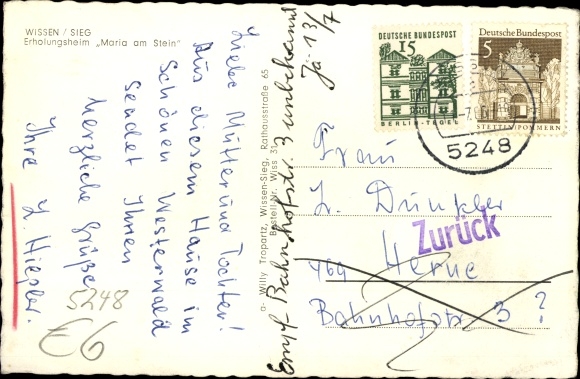 WISSEN / SIEG
Erholungsheim „Maria am Stein"
Liebe Mutter und Tochter!
Aus diesem Hause im
Schönen Westerwald
Sendet Ihnen
herzliche Grüße
Ihre L. Hiepler.
5248
€6
a. Willy Tropartz, Wissen-Sieg, Rathausstraße 65
Bestell-Nr. Wiss 3
Empf. Bahnhofstr. 3 unbekannt
Ja 13/7
DEUTSCHE BUNDESPOST
15
BERLIN-TEGEL
Deutsche Bundespost
5
STETTIN/POMMERN
5248
Frau
L. Dünkler
Zurück
469 Herne
Bahnhofstr 3 ?